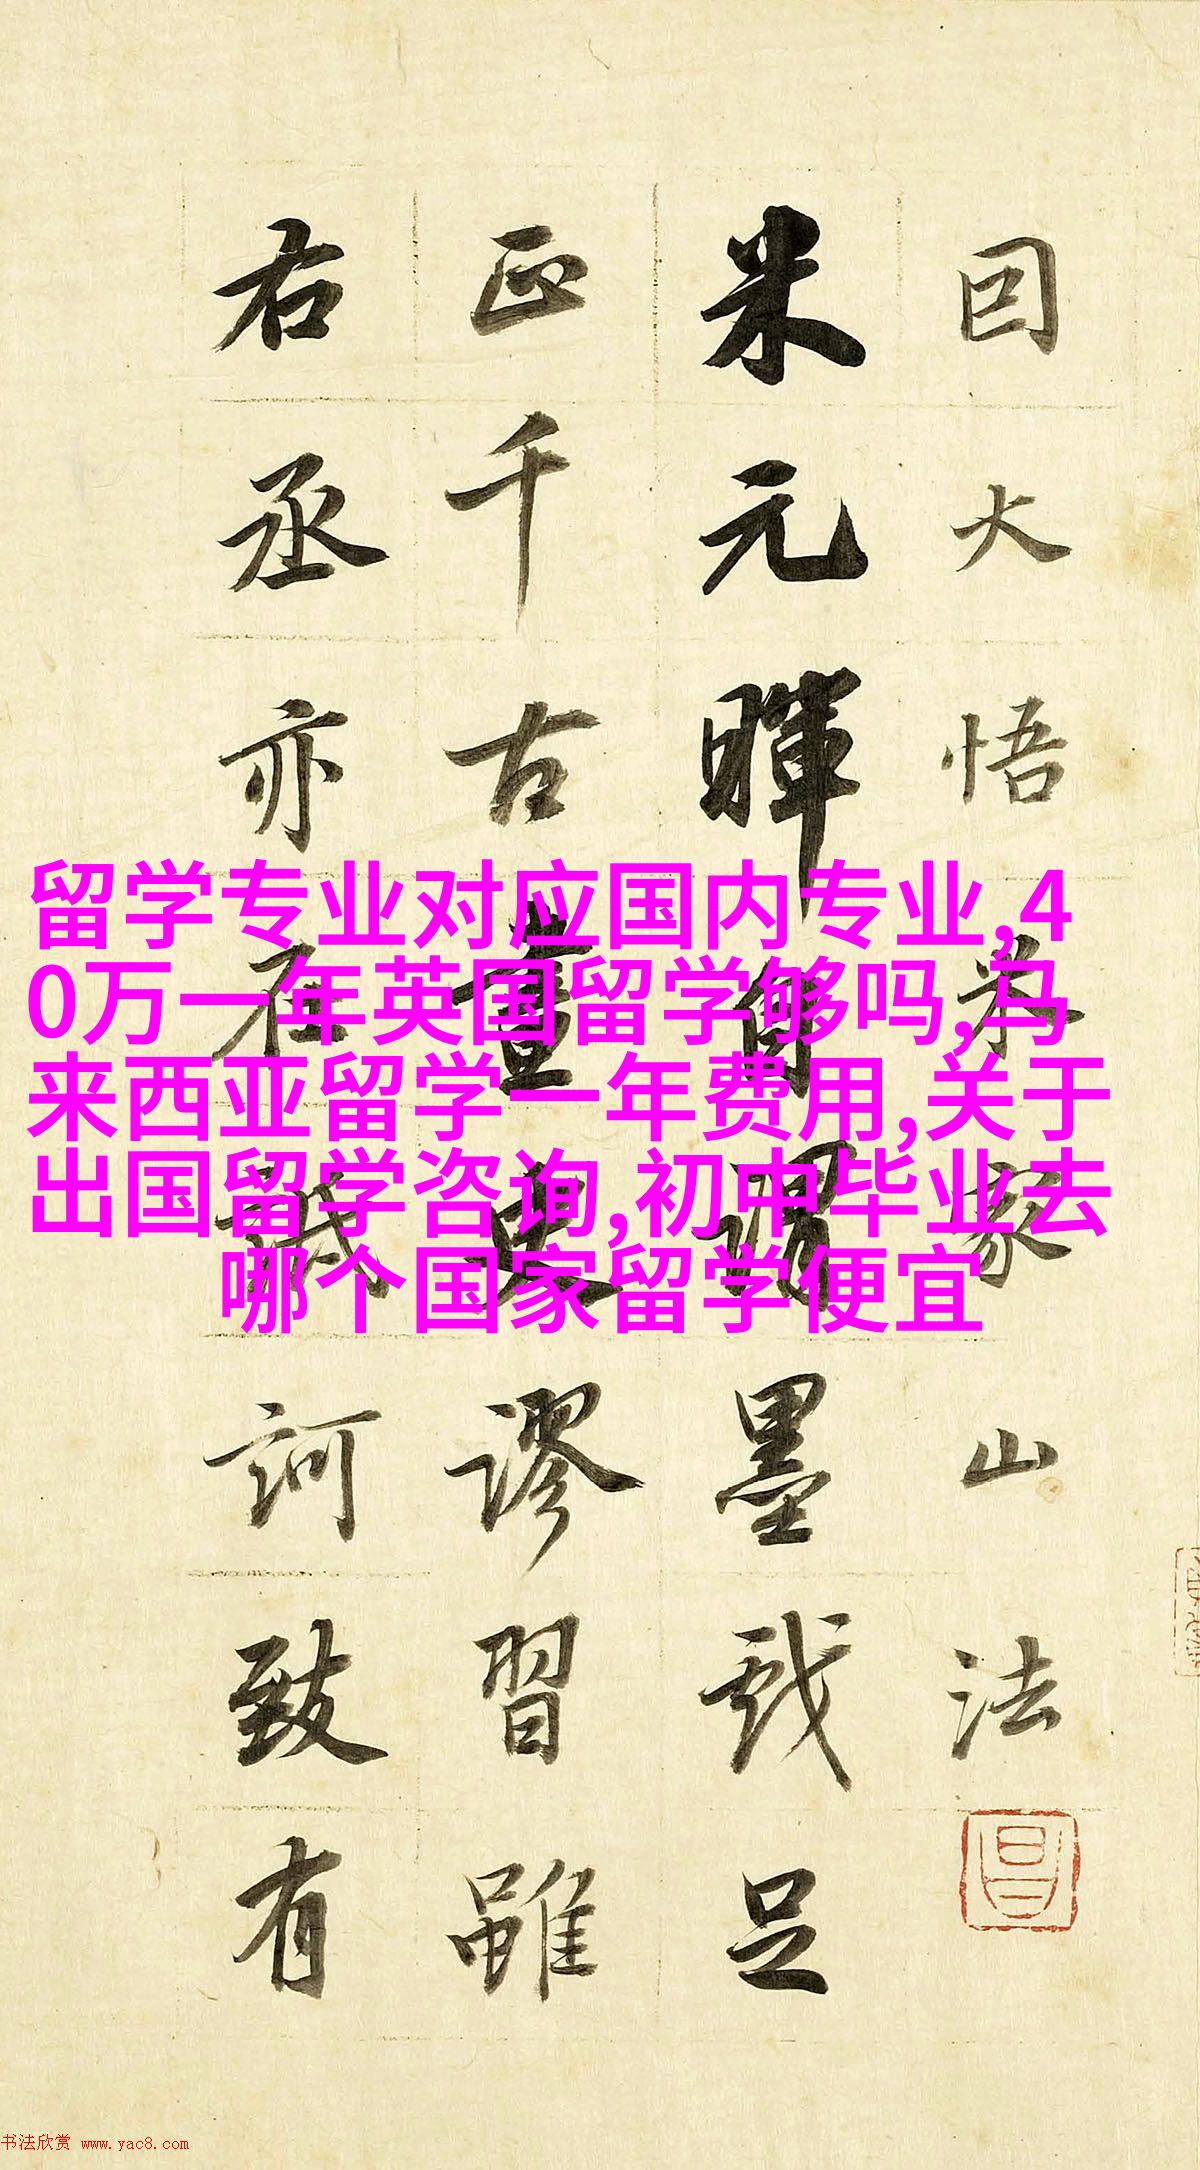 囙大悟米家山法
米元暉自謂墨戲足
正千古畫史謬習雖
右丞亦在詆訶致有
留学专业对应国内专业,4
0万一年英国留学够吗,马
来西亚留学一年费用,关于
出国留学咨询,初中毕业去
哪个国家留学便宜
书法欣赏 www.yac8.com